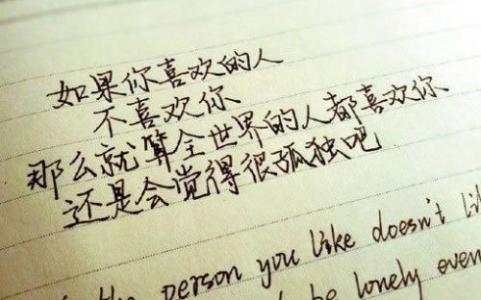 如果你喜欢的人
不喜欢你
那么就算全世界的人都喜欢你
还是会觉得很孤独吧
the person you like doesn't
be lonely even